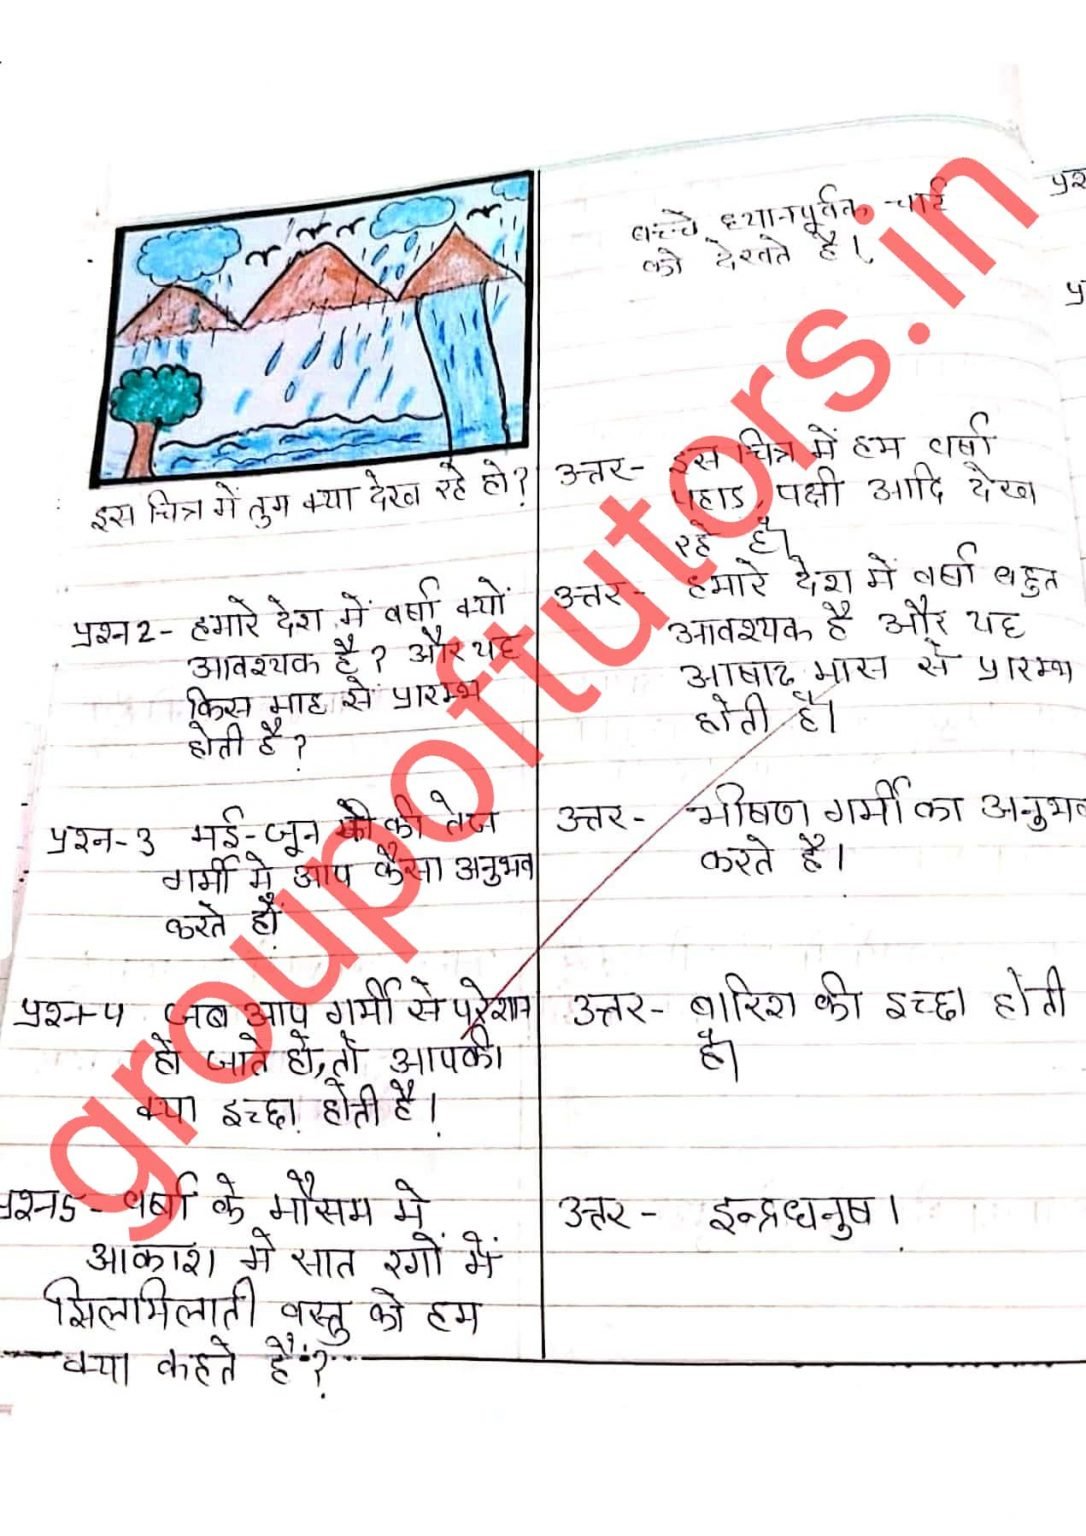 बच्चे ध्यानपूर्वक चार्ट
को देखते है।
इस चित्र में तुम क्या देख रहे हो?
उत्तर- इस चित्र में हम वर्षा
पहाड, पक्षी आदि देख
रहे है।
प्रश्न2- हमारे देश में वर्षा क्यों
आवश्यक है? और यह
किस माह से प्रारम्भ
होती है?
उत्तर- हमारे देश में वर्षा बहुत
आवश्यक है और यह
आषाढ मास से प्रारम्भ
होती है।
प्रश्न-3 मई-जून की तेज
गर्मी मे आप कैसा अनुभव
करते हों
उत्तर- भीषण गर्मी का अनुभव
करते है।
प्रश्न-4 जब आप गर्मी से परेशान
हो जाते हो, तो आपकी
क्या इच्छा होती है।
उत्तर- बारिश की इच्छा होती
है।
प्रश्न5- वर्षा के मौसम मे
आकाश में सात रगों में
झिलमिलाती वस्तु को हम
क्या कहते हैं?
उत्तर- इन्द्रधनुष।
groupoftutors.in